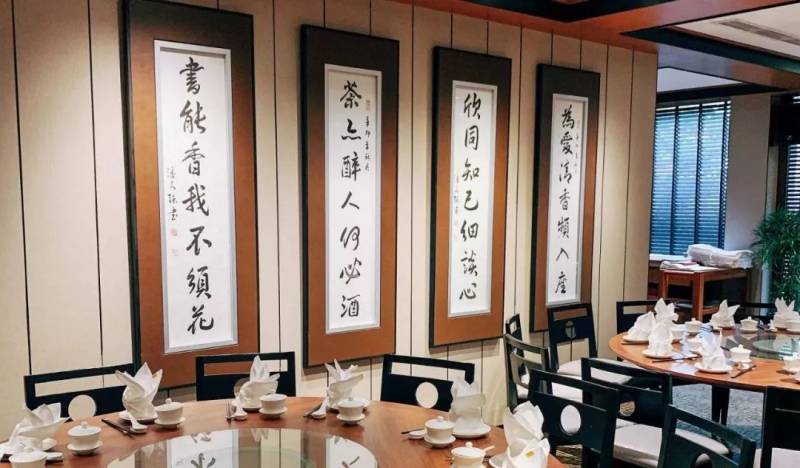 為愛清香頻入座
欣同知己細談心
茶亦醉人何必酒
書能香我不須花